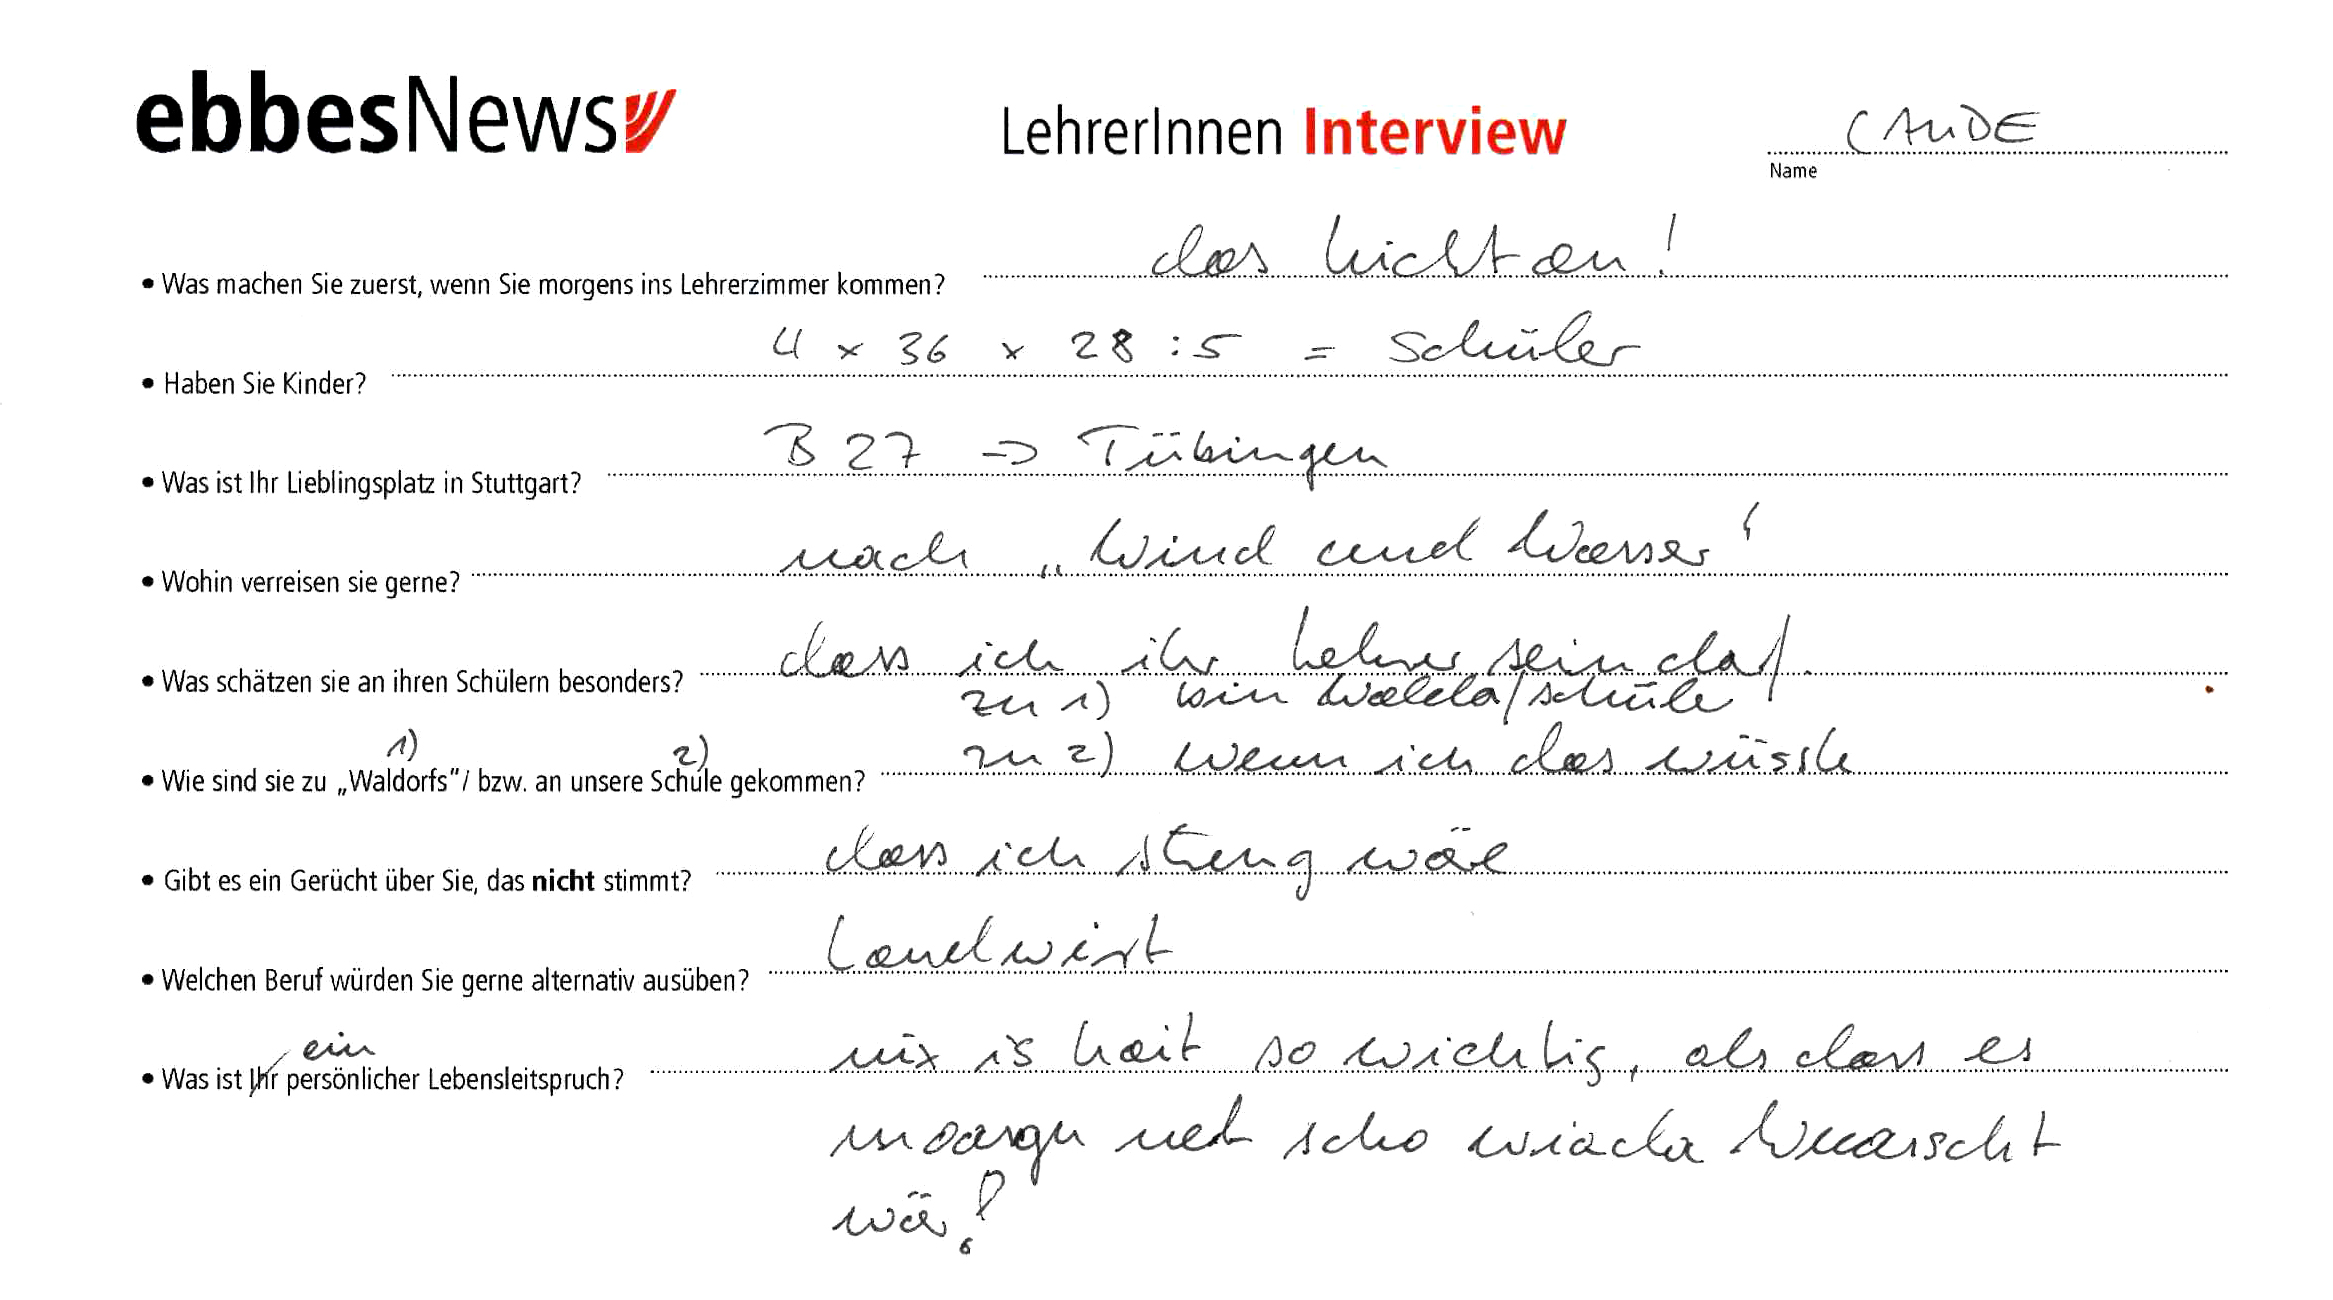 ebbesNews
LehrerInnen Interview
CAUDE
Name
• Was machen Sie zuerst, wenn Sie morgens ins Lehrerzimmer kommen? das Licht an!
• Haben Sie Kinder? 4 x 36 x 28 : 5 = Schüler
• Was ist Ihr Lieblingsplatz in Stuttgart? B 27 => Tübingen
• Wohin verreisen sie gerne? nach „Wind und Wasser"
• Was schätzen sie an ihren Schülern besonders? dass ich ihr Lehrer sein darf.
zu 1) bin Waldorfschüler
1) 2) zu 2) wenn ich das wüsste
• Wie sind sie zu „Waldorfs"/ bzw. an unsere Schule gekommen?
• Gibt es ein Gerücht über Sie, das nicht stimmt? dass ich streng wäre
• Welchen Beruf würden Sie gerne alternativ ausüben? Landwirt
ein
• Was ist Ihr persönlicher Lebensleitspruch? nix is heit so wichtig, als dass es
moargn net scho wiada Wuarscht
wär!